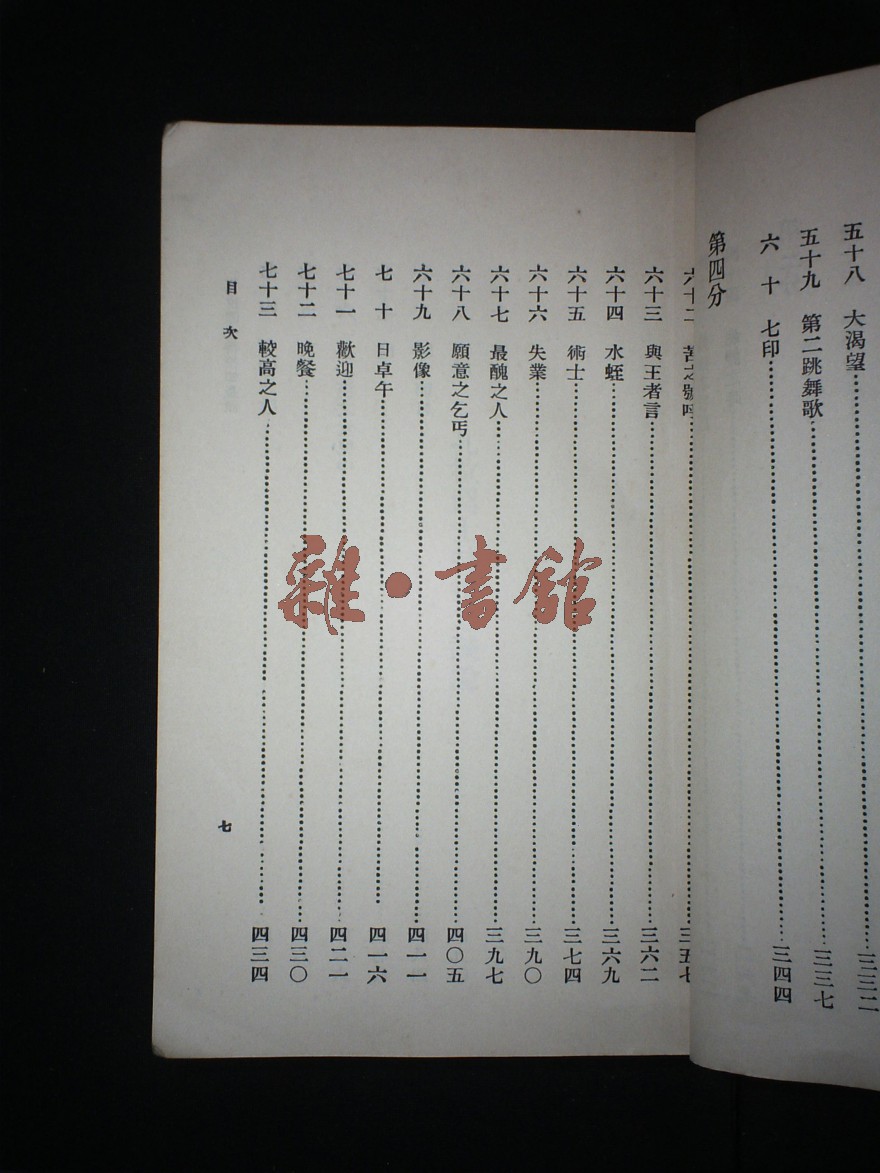 五十八　大渴望……三三二
五十九　第二跳舞歌……三三七
六　十　七印……三四四
第四分
六十二　苦之號呼……三五七
六十三　與王者言……三六二
六十四　水蛭……三六九
六十五　術士……三七四
六十六　失業……三九〇
六十七　最醜之人……三九七
六十八　願意之乞丐……四〇五
六十九　影像……四一一
七　十　日卓午……四一六
七十一　歡迎……四二一
七十二　晚餐……四三〇
七十三　較高之人……四三四
目　次
七
雜·書館